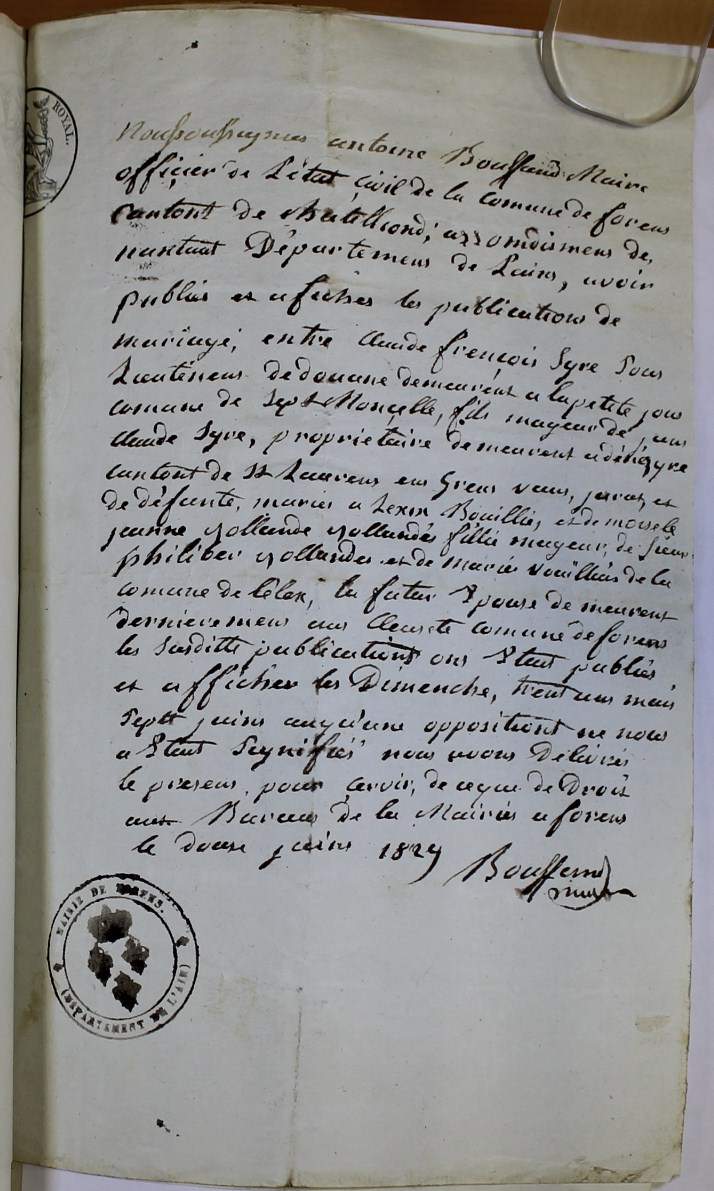 ROYAL.
Nousoussignes antoine Bouffand Maire
officier de L'état çivil de la comune de forens
cantont de chatillond; arrondismens de,
nantuat Département de Lains, avoir
publiés et afichés les publications de
mariage; entre claude françois Syre Sous
Lieuténens de douane demeurént a lapetite joux
comune de Sept Monçelle, fils mageur de
claude Syre, propriétaire demeurent a
cantont de St Laurens en Grens vaux, jurat, et
de défante, mariée a Bouillié, et demoiselle
jeanne rollande rollandés fillie mageur, de sieur
philiber rollandes et de mariée vouilliés de la
comune de lélex, la futur Epouse demeurent
dernierement aus comune de forens
les susditte publications ons Etait publiés
et affichés les Dimanche, trentuns mais
Septt juins auqu'une oppositiont ne nous
a Etait Signifiés nous avons Délivrés
le present, pour servoir, de ceque de Droit
aus Bureaus de la Mairiés a forens
le douse juins 1829
Bouffand
maire
MAIRIE DE FORENS.
(DÉPARTEMENT DE L'AIN)